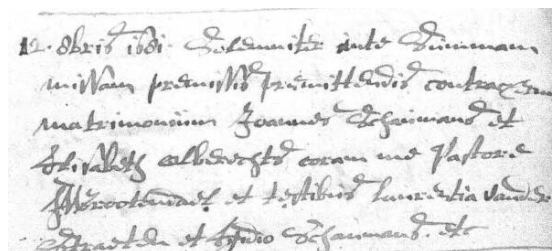 12. 8bris 1681. Solemniter ante Summam
missam premissis premittendis contraxerunt
matrimonium Joannes Schaumans et
Elisabeth Alberechts coram me Pastore
Grootendael et testibus laurentia vander
Straeten et Egidio Schaumans. etc